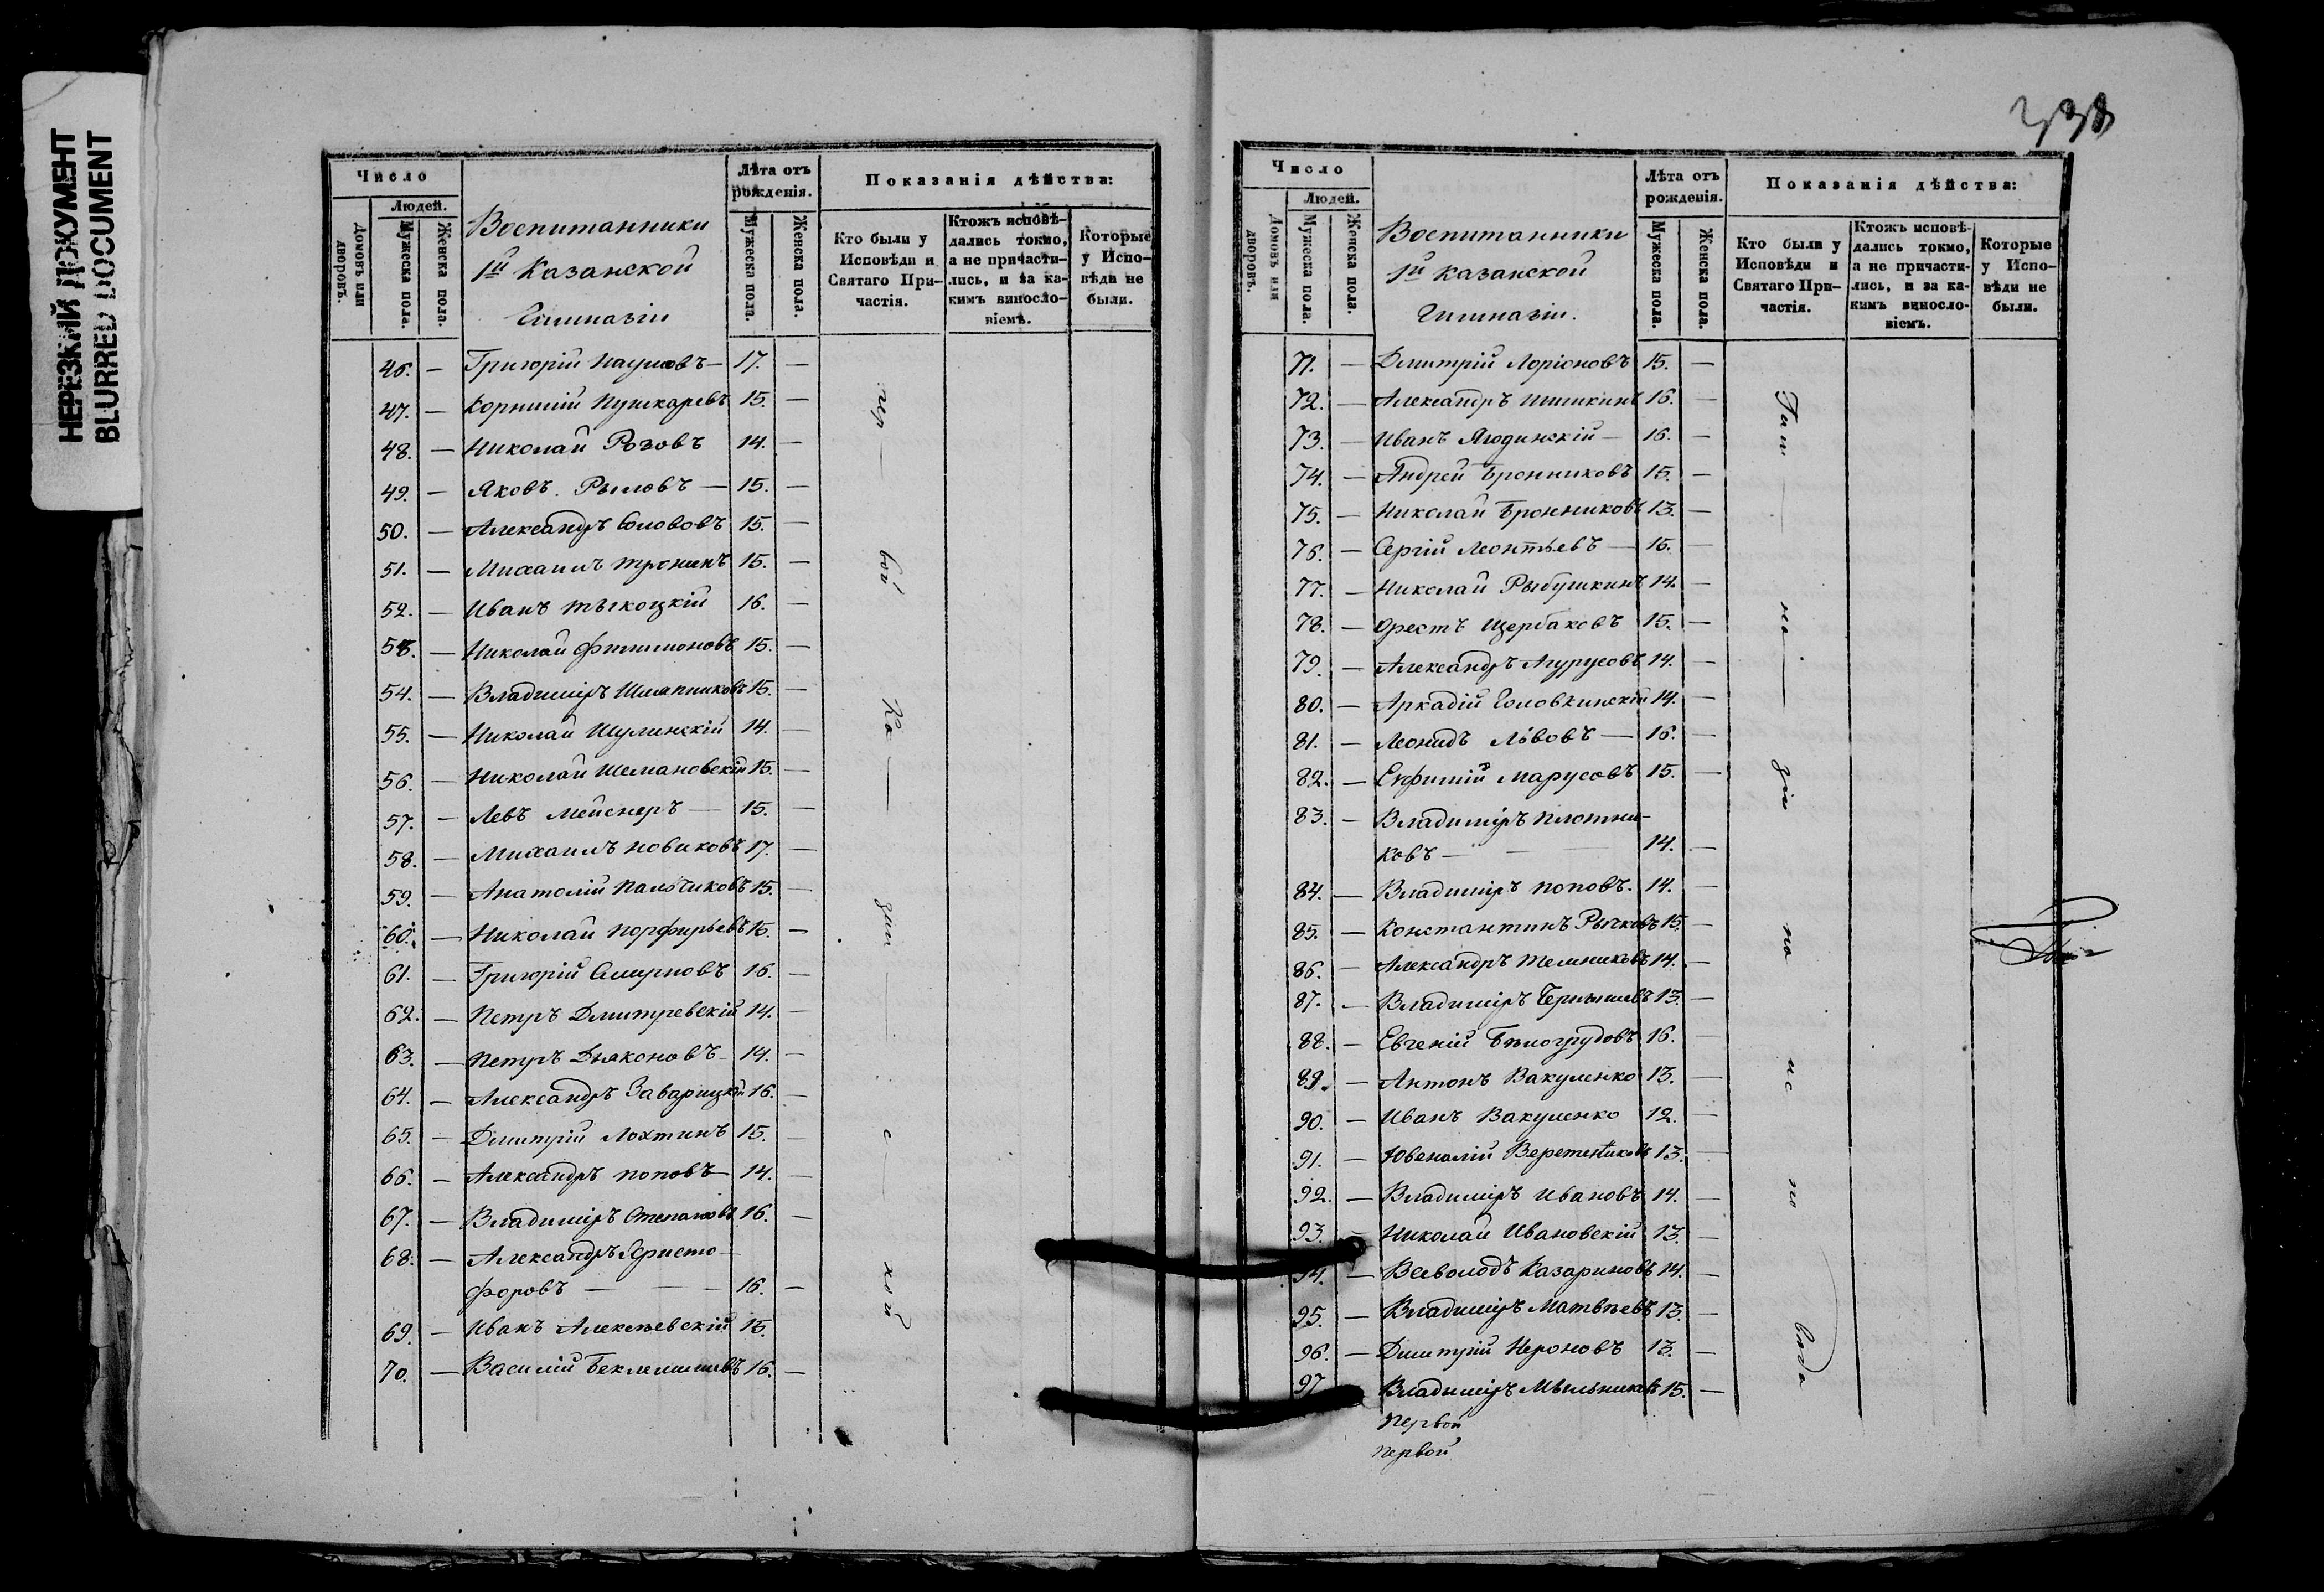 НЕРЕЗКИЙ ДОКУМЕНТ
BLURRED DOCUMENT
Число
Людей.
Домовъ или дворовъ.
Мужеска пола.
Женска пола.
Воспитанники
1й Казанской
Гимназіи
Лѣта отъ рожденія.
Мужеска пола.
Женска пола.
Показанія дѣйства:
Кто были у Исповѣди и Святаго Причастія.
Ктожъ исповѣдались токмо, а не причастились, и за какимъ винословіемъ.
Которые у Исповѣди не были.
46. — Григорій Наумовъ — 17. —
47. — Корнилій Пушкаревъ 15. —
48. — Николай Розовъ 14. —
49. — Яковъ Рыловъ — 15. —
50. — Александръ Солововъ 15. —
51. — Михаилъ Тронинъ 15. —
52. — Иванъ Тыкоцкій 16. —
53. — Николай Филимоновъ 15. —
54. — Владиміръ Шляпниковъ 15. —
55. — Николай Шулинскій 14. —
56. — Николай Шемановскій 15. —
57. — Левъ Мейснеръ — 15. —
58. — Михаилъ Новиковъ 17. —
59. — Анатолій Пальчиковъ 15. —
60. — Николай Порфирьевъ 15. —
61. — Григорій Смирновъ 16. —
62. — Петръ Дмитревскій 14. —
63. — Петръ Дьяконовъ — 14. —
64. — Александръ Заварицкій 16. —
65. — Дмитрій Лохтинъ 15. —
66. — Александръ Поповъ — 14. —
67. — Владиміръ Степановъ 16. —
68. — Александръ Христо-
форовъ — — — 16. —
69. — Иванъ Алексѣевскій 15.
70. — Василій Беклемишевъ 16. —
пер — вой Ка — зан — с — кой
338
Число
Людей.
Домовъ или дворовъ.
Мужеска пола.
Женска пола.
Воспитанники
1й Казанской
Гимназіи.
Лѣта отъ рожденія.
Мужеска пола.
Женска пола.
Показанія дѣйства:
Кто были у Исповѣди и Святаго Причастія.
Ктожъ исповѣдались токмо, а не причастились, и за какимъ винословіемъ.
Которые у Исповѣди не были.
71. — Дмитрій Лоріоновъ 15. —
72. — Александръ Шишкинъ 16. —
73. — Иванъ Ягодинскій — 16. —
74. — Андрей Бронниковъ 15. —
75. — Николай Бронниковъ 13. —
76. — Сергій Леонтьевъ — 15. —
77. — Николай Рыбушкинъ 14. —
78. — Орестъ Щербаковъ 15. —
79. — Александръ 14. —
80. — Аркадій Головкинскій 14. —
81. — Леонидъ Львовъ — 16. —
82. — Ефимій Марусовъ 15. —
83. — Владиміръ Плотни-
ковъ — — — 14. —
84. — Владиміръ Поповъ. 14. —
85. — Константинъ Рычковъ 15. —
86. — Александръ 14. —
87. — Владиміръ Чернышевъ 13. —
88. — Евгеній Бѣлогрудовъ 16. —
89. — Антонъ Вакуленко 13. —
90. — Иванъ Вакуленко 12. —
91. — Ювеналій Веретенниковъ 13. —
92. — Владиміръ Ивановъ 14. —
93. — Николай Ивановскій 13. —
94. — Всеволодъ Казариновъ 14. —
95. — Владиміръ Матвѣевъ 13. —
96. — Дмитрій Нероновъ 13. —
97 Владиміръ Мыльниковъ 15. —
Первой
Первой
Гим — на — зіи